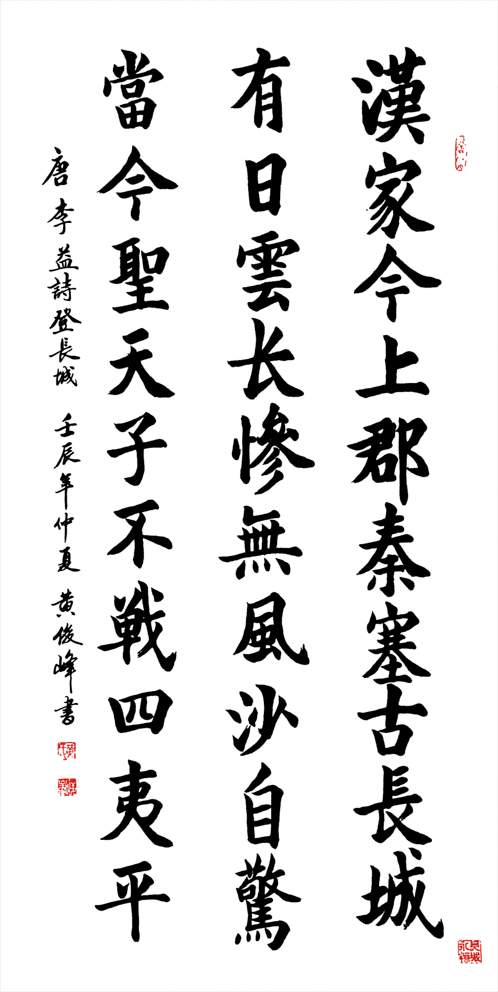 漢家今上郡秦塞古長城
有日雲长慘無風沙自驚
當今聖天子不戦四夷平
唐李益詩登長城 壬辰年仲夏 黄俊峰书